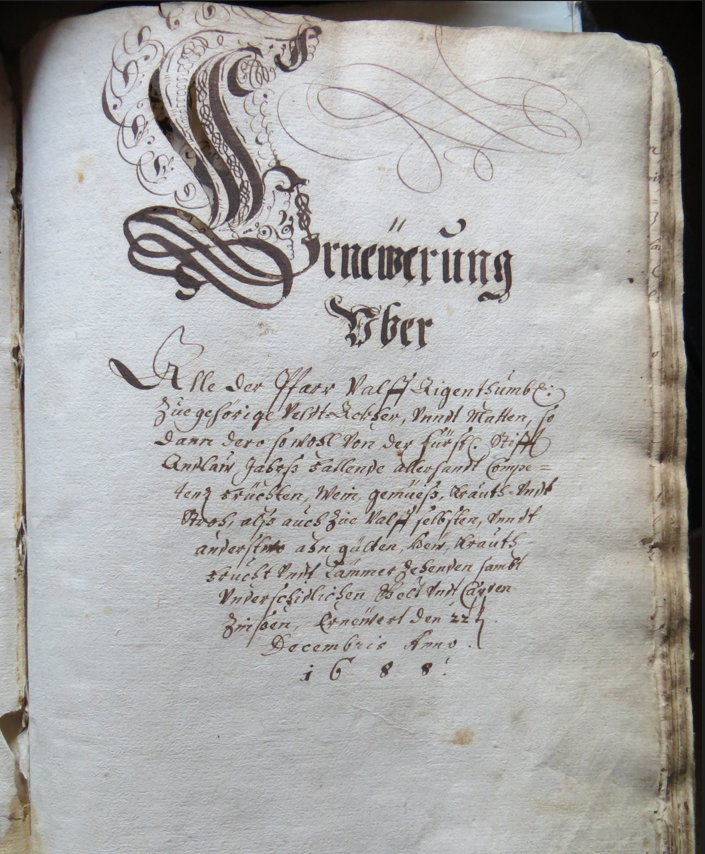 Ernewerung
Vber
Alle der Pfarr Valff Aigenthumbl:
Zuegehörige Veldt Äckher, Vnndt Matten, so
dann dero sowohl Von der Fürstl: Stifft
Andlaw Jahrß fallende allerhandt Compe=
tenz früchten, Wein, gemüeß, Krauth Vndt
Stroh, alß auch Zue Valff selbsten, Vnndt
anderst ahn gülten, Hew, Krauth
frucht Vndt Lämmer Zehenden sambt
Vnderschidlichen Vndt
Zinßen, Ernewert den 22t
Decembris Anno.
1688